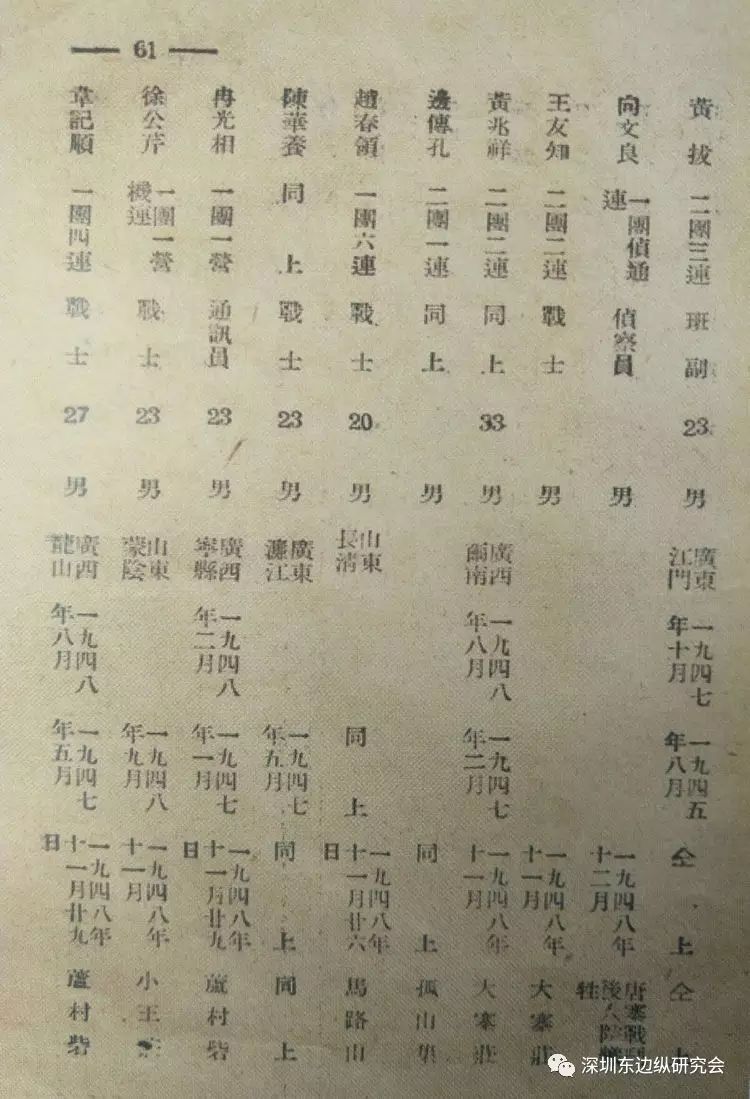 — 61 —
黃拔 二團三連 班副 23 男 廣東江門 一九四七年十月 一九四五年八月 仝上 仝上
向文良 一團偵通連 偵察員 男 一九四八年十二月 唐寨戰 後入 牲
王友知 二團二連 戰士 男 一九四八年十一月 大寨莊
黃兆祥 二團二連 同上 33 男 廣西 南 一九四八年八月 一九四七年二月 一九四八年十一月 大寨莊
邊傳孔 二團一連 同上 男 同上 孤山集
趙春領 一團六連 戰士 20 男 山東長清 同上 一九四八年十一月廿六日 馬路山
陳華養 同上 戰士 23 男 廣東濂江 一九四七年五月 同上 同上
冉光相 一團一營 通訊員 23 男 廣西寧縣 一九四八年二月 一九四七年一月 一九四八年十一月廿九日 蘆村砦
徐公芹 一團一營機連 戰士 23 男 山東蒙陰 一九四八年九月 一九四八年十一月 小王
韋記順 一團四連 戰士 27 男 廣西龍山 一九四八年八月 一九四七年五月 一九四八年十一月廿九日 蘆村砦
深圳东边纵研究会